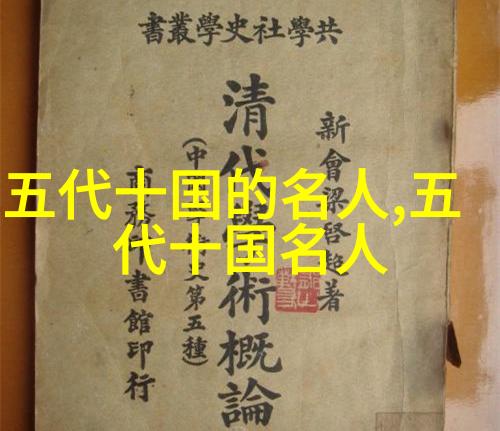 共學社史學叢書
新會梁啓超著
清代學術概論
(中第五種)
商務印書館印行
五代十国的名人,五
代十国名人